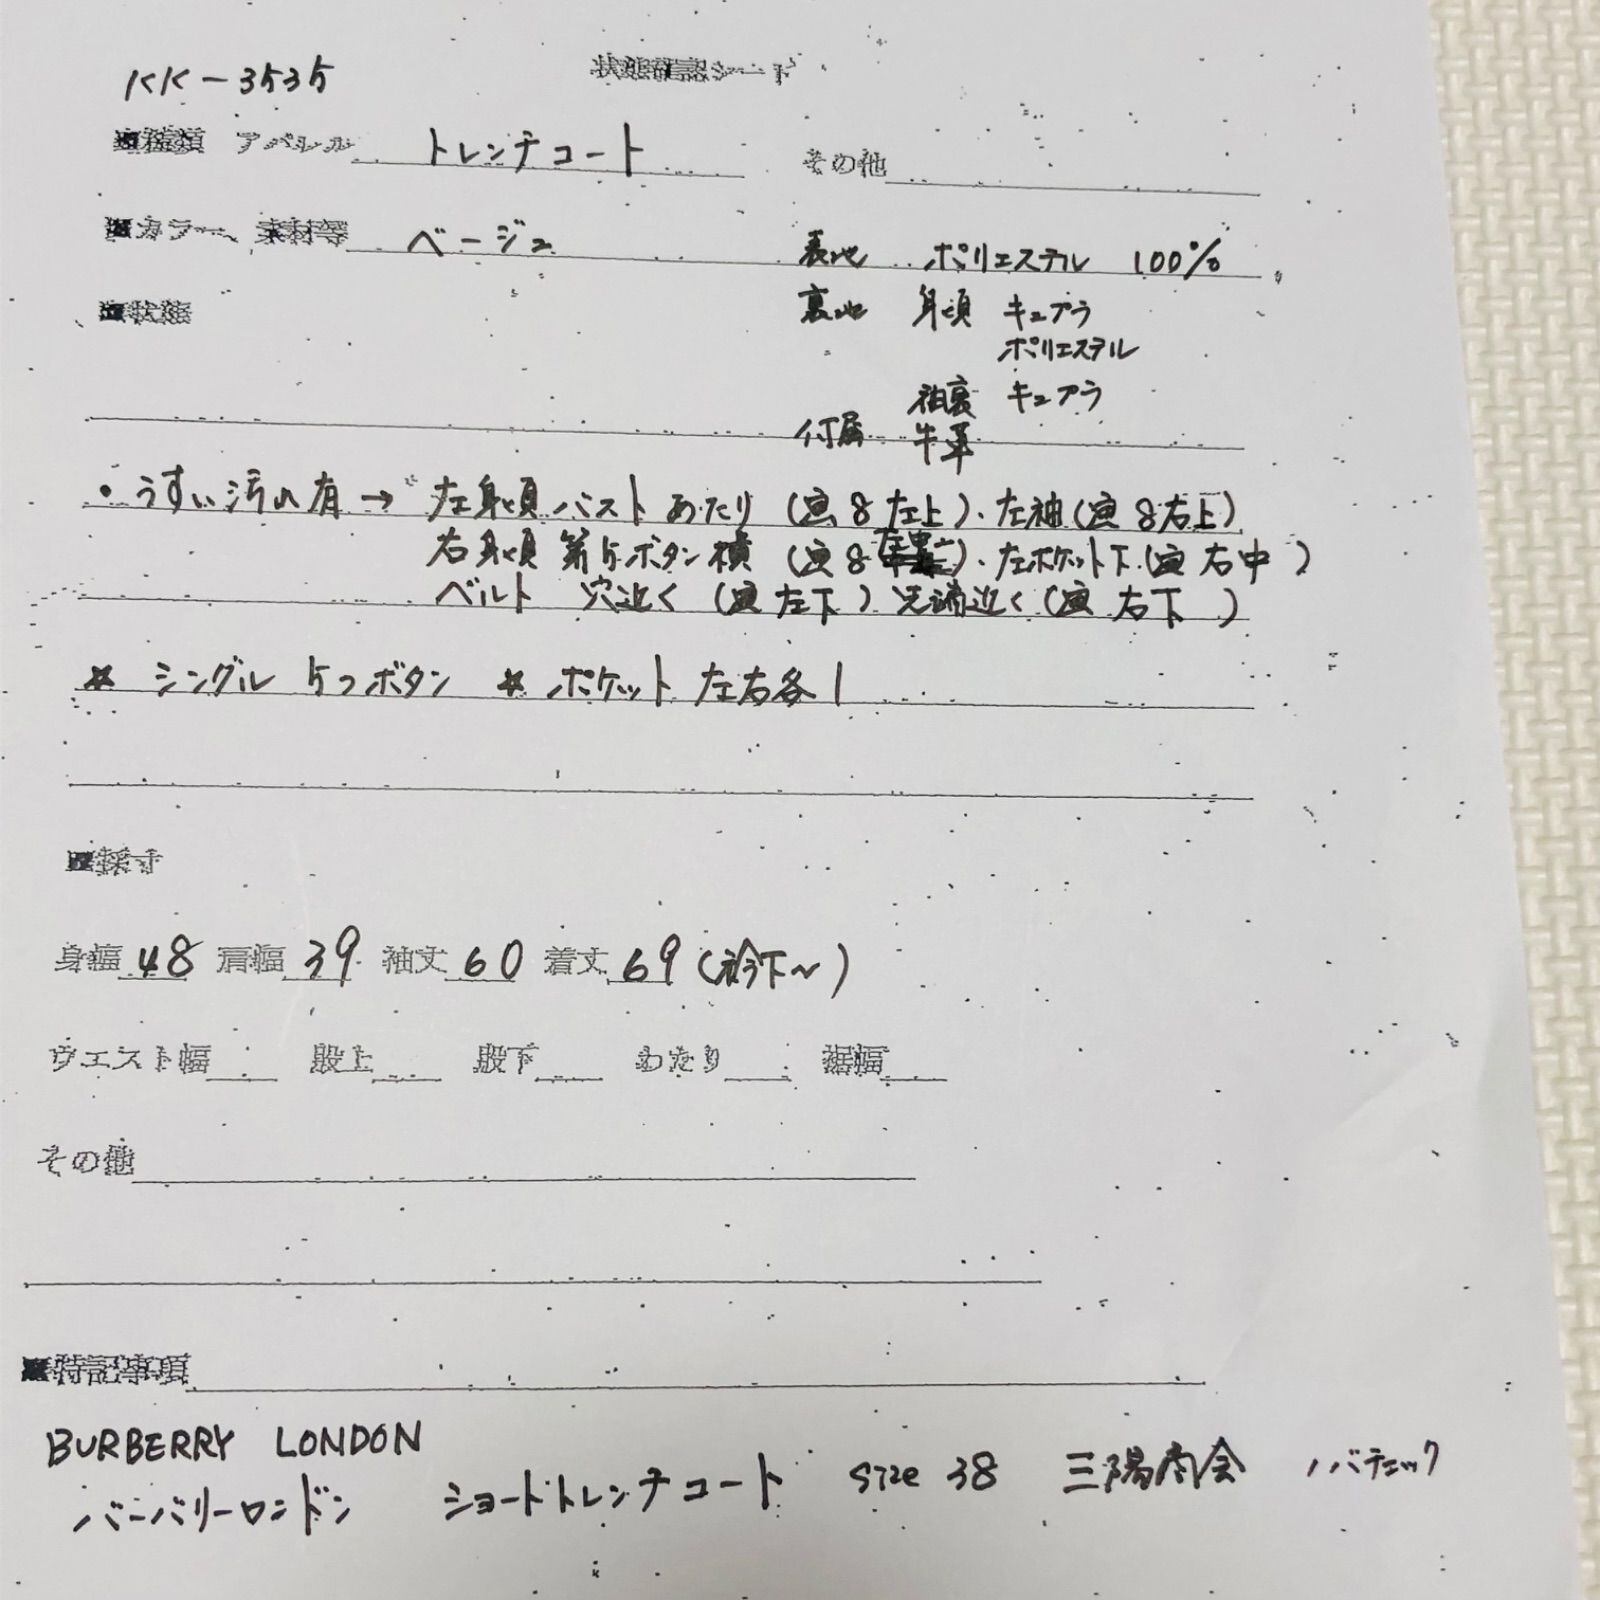 KK-3535
状態確認シート
■種類 アパレル トレンチコート その他
■カラー、素材等 ベージュ 表地 ポリエステル 100%
■状態 裏地 身頃 キュプラ
ポリエステル
袖裏 キュプラ
付属 牛革
・うすい汚れ有→ 左身頃バストあたり (画8左上)・左袖(画8右上)
右身頃 第5ボタン横 (画8)・左ポケット下(画右中)
ベルト 穴近く (画左下) 先端近く(画右下)
* シングル5つボタン * ポケット左右各1
■採寸
身幅 48 肩幅 39 袖丈 60 着丈 69 (衿下~)
ウエスト幅 股上 股下 わたり 裾幅
その他
■特記事項
BURBERRY LONDON
バーバリーロンドン ショートトレンチコート size 38 三陽商会 ノバチェック